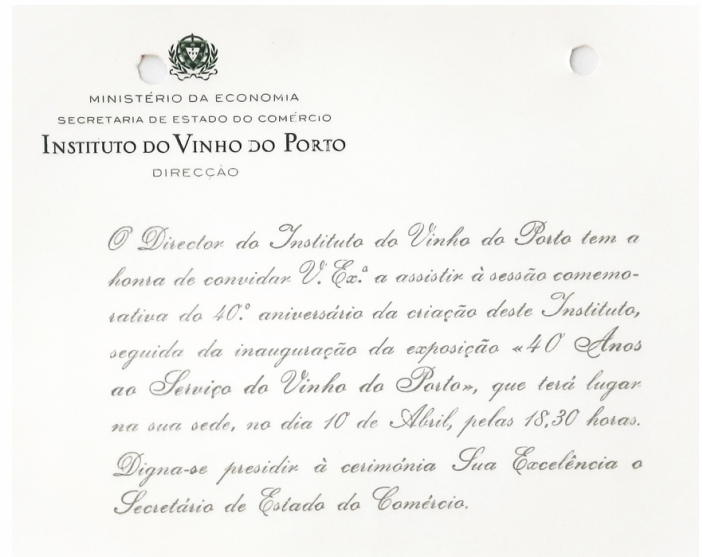 MINISTÉRIO DA ECONOMIA
SECRETARIA DE ESTADO DO COMÉRCIO
INSTITUTO DO VINHO DO PORTO
DIRECÇÃO
O Director do Instituto do Vinho do Porto tem a
honra de convidar V. Ex.ª a assistir à sessão comemo-
rativa do 40.º aniversário da criação deste Instituto,
seguida da inauguração da exposição «40 Anos
ao Serviço do Vinho do Porto», que terá lugar
na sua sede, no dia 10 de Abril, pelas 18,30 horas.
Digna-se presidir à cerimónia Sua Excelência o
Secretário de Estado do Comércio.